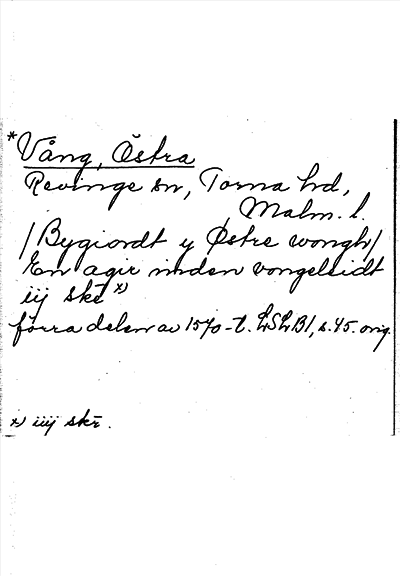 *Vång, Östra
Revinge sn, Torna hd,
Malm. l.
/Bygiordt y Østre wongh/
En agir inden vongeleidt
iij skē x)
förra delen av 1570-t. LSLB1, s. 45. orig.
x) iiij skē.